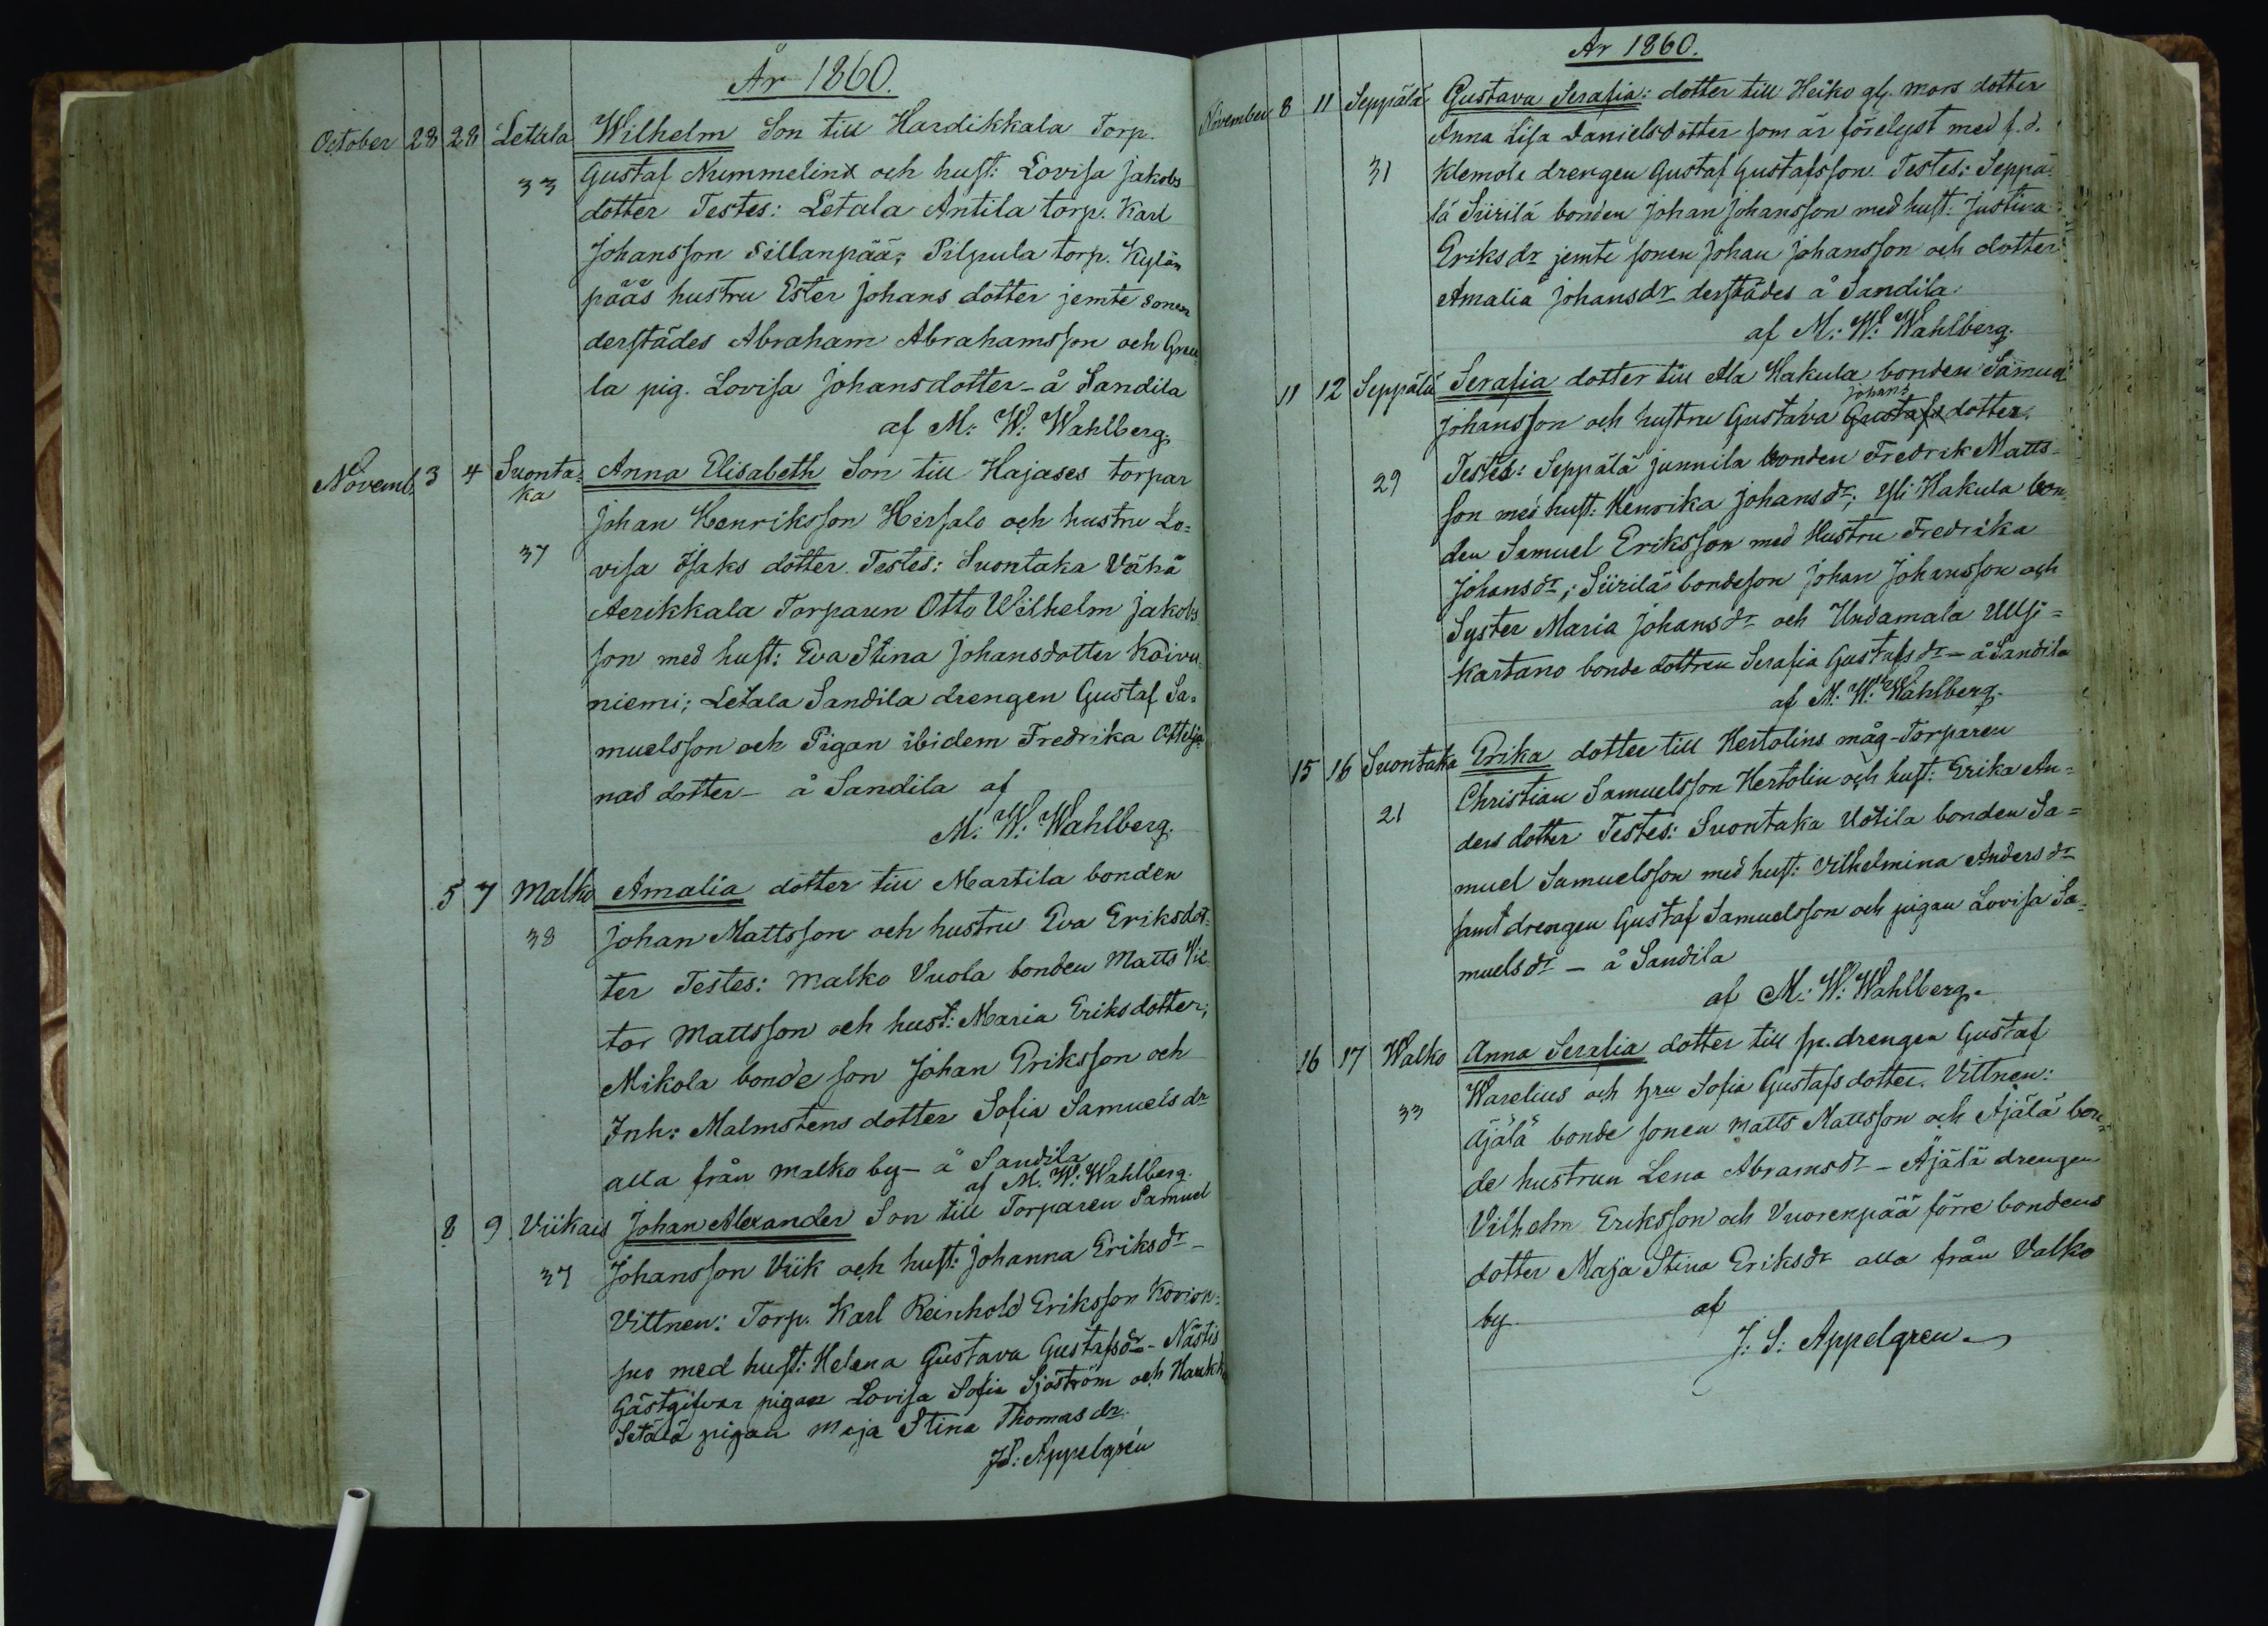 År 1860.
October 28 28 Letala Wilhelm Son till Hardikkala Torp.
33 Gustaf Nummelin och hust: Lovisa Jakobs
dotter Testes: Letala Antila torp. Karl
Johansson Sillanpää; Pilpula torp. Kylän
pääs hustru Ester Johans dotter jemte sonen
derstädes Abraham Abrahamsson och
la pig. Lovisa Johansdotter – å Sandila
af M: W: Wahlberg.
Novemb. 3 4 Suonta=
ka
Anna Elisabeth Son till Hajases torpar
Johan Henriksson Hirsalo och hustru Lo=
37 visa Isaks dotter. Testes: Suontaka Vähä
Aerikkala Torparen Otto Wilhelm Jakobs
son med hust: Eva Stina Johansdotter Koivu
niemi; Letala Sandila drengen Gustaf Sa=
muelsson och Pigan ibidem Fredrika
nas dotter – å Sandila af
M: W: Wahlberg.
5 7 Malko Amalia dotter till Martila bonden
38 Johan Mattsson och hustru Eva Eriksdot=
ter Testes: Malko Vuola bonden Matts Vic
tor Mattsson och hust: Maria Eriksdotter;
Mikola bonde son Johan Eriksson och
Inh: Malmstens dotter Sofia Samuelsdr
alla från Malko by – å Sandila
af M. W: Wahlberg.
8 9 Viikais Johan Alexander Son till Torparen Samuel
37 Johansson Viik och hust: Johanna Eriksdr –
Vittnen: Torp. Karl Reinhold Eriksson Korion=
suo med hust: Helena Gustava Gustafsdr – Nästis
Gästgifvar pigan Lovisa Sofia Sjöström och
Sätälä pigan Maja Stina Thomasdr.
JS: Appelgrén
År 1860.
November 8 11 Seppälä Gustava Serafia: dotter till Heiko glf. mors dotter
Anna Lisa Danielsdotter som är förelyst med f.d.
31 Klemola drengen Gustaf Gustafsson. Testes: Seppä=
lä Siirilä bonden Johan Johansson med hust: Justina
Eriksdr jemte sonen Johan Johansson och dotter
Amalia Johansdr derstädes å Sandila
af M: W: Wahlberg.
11 12 Seppälä Serafia dotter till Ala Hakula bonden Samuel
Johans
Johansson och hustru Gustava Gustafs dotter.
29 Testes: Seppälä Junnila bonden Fredrik Matts=
son med hust: Henrika Johansdr; Yli Hakula bon
den Samuel Eriksson med Hustru Fredrika
Johansdr; Siirilä bondeson Johan Johansson och
Syster Maria Johansdr och Undamala Ulsi=
kartano bonde dottren Serafia Gustafsdr – å Sandila
af M: W: Wahlberg.
15 16 Suontaka Erika dotter till Hertolins måg-Torparen
Christian Samuelsson Hertolin och hust: Erika An=
21 ders dotter Testes: Suontaka Uotila bonden Sa=
muel Samuelsson med hust: Vilhelmina Andersdr
samt drengen Gustaf Samuelsson och pigan Lovisa Sa=
muelsdr – å Sandila
af M: W: Wahlberg.
16 17 Walko Anna Serafia dotter till sp. drengen Gustaf
Warelius och hru Sofia Gustafs dotter. Vittnen:
33 Äjälä bonde sonen Matts Mattsson och Äjälä bon=
de hustrun Lena Abramsdr – Äjälä drengen
Vilhelm Eriksson och Vuorenpää förre bondens
dotter Maja Stina Eriksdr alla från Valko
by af
J: S: Appelgren